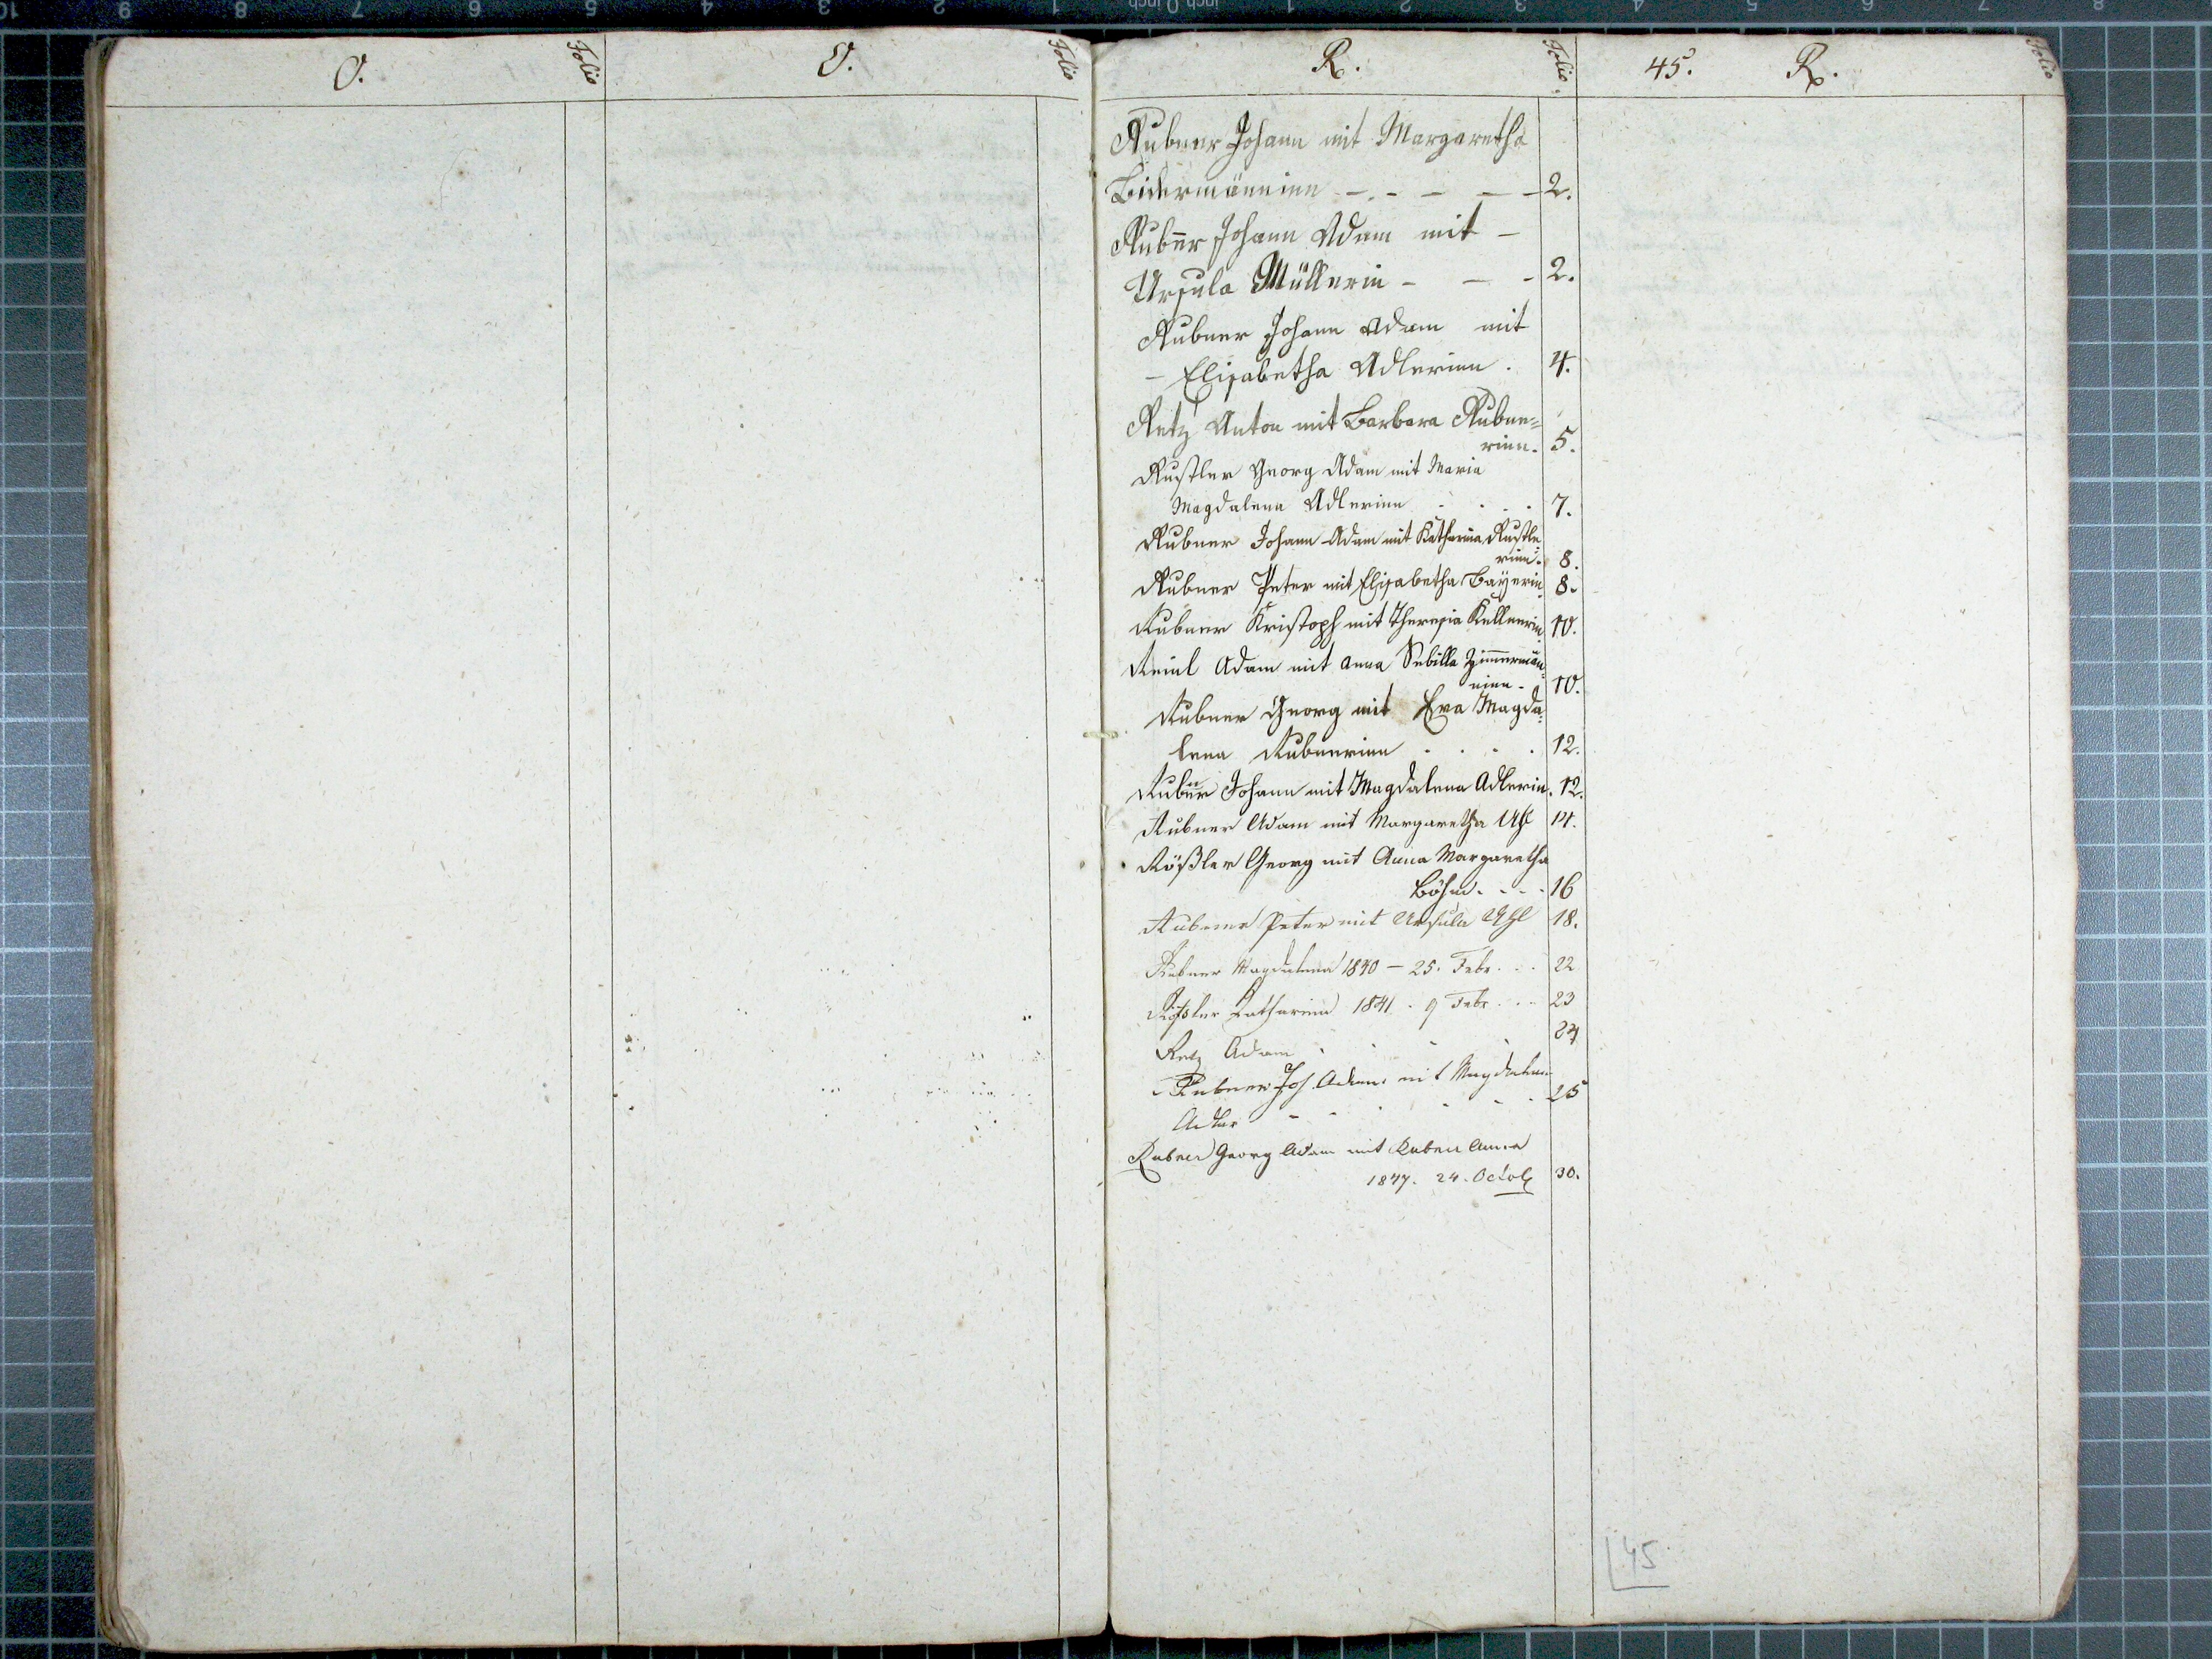 O.
Folio
O.
Folio
R.
Folio.
45.
R.
Folio
Rubner Johann mit Margaretha
Bidermäninn - - - - - 2.
Rubn̄er Johann Adam mit -
Ursula Müllerin - - - 2.
Rubner Johann Adam mit
- Elisabetha Adlerinn. 4.
Retz Anton mit Barbara Rubne=
rinn. 5.
Rustler Georg Adam mit Maria
Magdalena Adlerinn . . . 7.
Rubner Johann Adam mit Katharina Rustle=
rinn. 8.
Rubner Peter mit Elisabetha Bayerin 8.
Rubner Kristoph mit Theresia Kellnerin 10.
Reinl Adam mit Anna Sebilla Zimmermän=
ninn. 10.
Rubner Georg mit Eva Magda=
lena Rubnerinn . . . . 12.
Rubn̄er Johann mit Magdalena Adlerin. 12.
Rubner Adam mit Margaretha Uhl 14.
Rößler Georg mit Anna Margaretha
Böhm. - - - 16
Rubner Peter mit Ursula Uhl 18.
Rubner Magdalena 1840 - 25. Febr. . . 22
Rößler Katharina 1841 . 9 Febr. . . 23
Retz Adam . . . 24
Rubner Joh. Adam mit Magdalena
Adler - - . . - . 25
Rubner Georg Adam mit Rubner Anna
1847. 24. Octob 30.
45